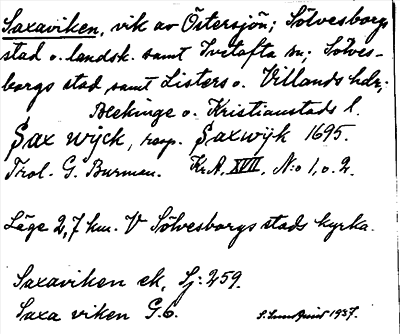 Saxaviken, vik av Östersjön; Sölvesborgs
stad o. landsk. samt Ivetofta sn; Sölves-
borgs stad samt Listers o. Villands hdr;
Blekinge o. Kristianstads l.
Sax wijck, resp. Saxwijk 1695.
Trol. G. Burman. Kr.A. XVII, N:o 1, o. 2.
Läge 2,7 km. V Sölvesborgs stads kyrka.
Saxaviken ek, Sj: 259.
Saxa viken G.6.
1937.